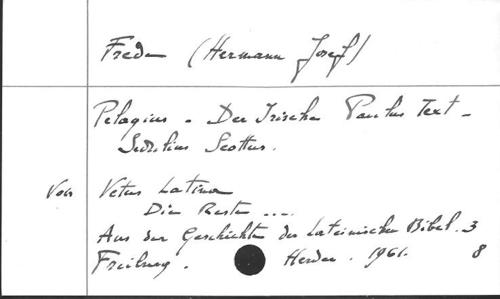 Frede (Hermann Josef)
Pelagius - Der Irische Paulus Text -
Sedulius Scottus.
Voir Vetus Latina
Die Reste ...
Aus der Geschichte der Lateinischen Bibel. 3
Freiburg. Herder. 1961. 8